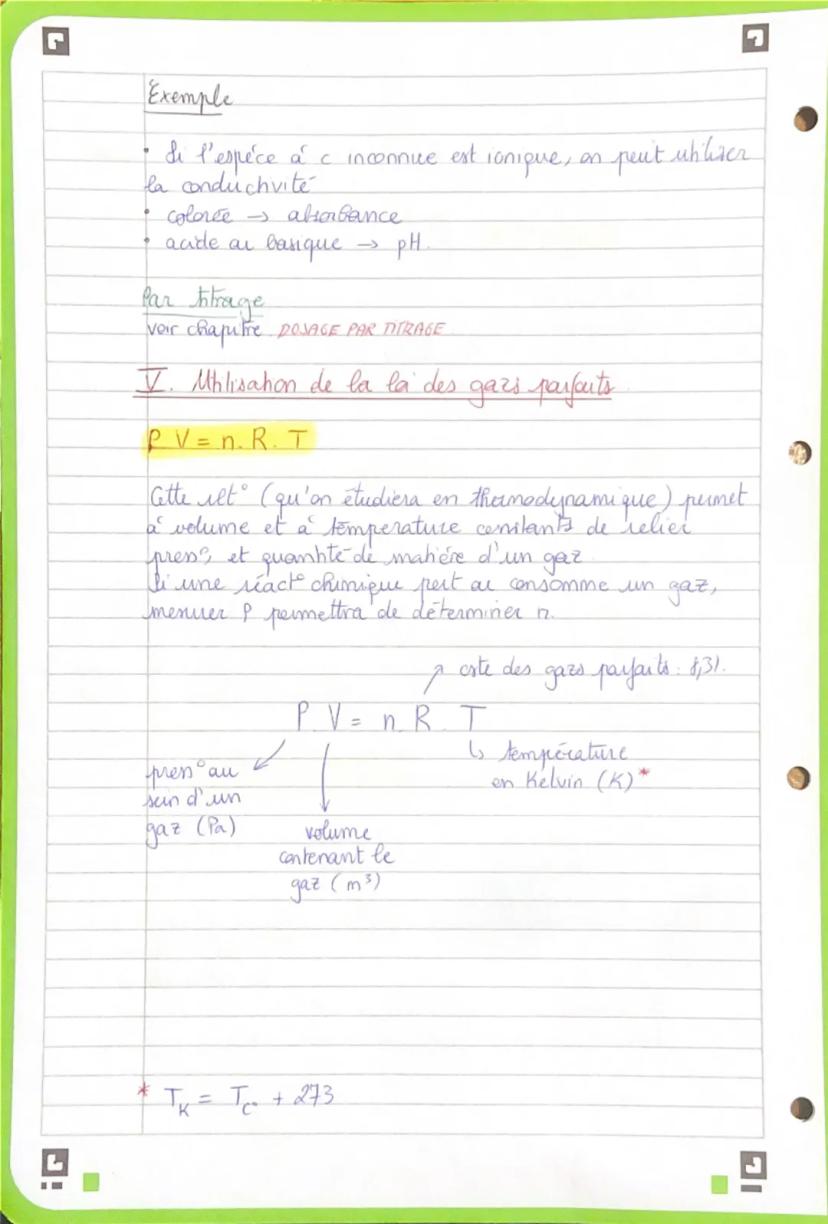 Exemple
• Si l'espéce à c inconnue est ionique, on peut utiliser
la conductivité
• colorée → absorbance
• acide ou basique → pH.
Par titrage
voir chapitre DOSAGE PAR TITRAGE
V. Utilisation de la loi des gazs parfaits
P V = n. R. T
Cette relt° (qu'on étudiera en thermodynamique) permet
à volume et à température constants de relier
press°, et quantité de matière d'un gaz
Si une réact° chimique perd ou consomme un gaz,
mesurer P permettra de déterminer n.
↗ cste des gazs parfaits : 8,31.
P V = n R . T
↳ température
en Kelvin (K)*
press° au
sein d'un
gaz (Pa)
volume
contenant le
gaz (m³)
* T_K = T_C° + 273